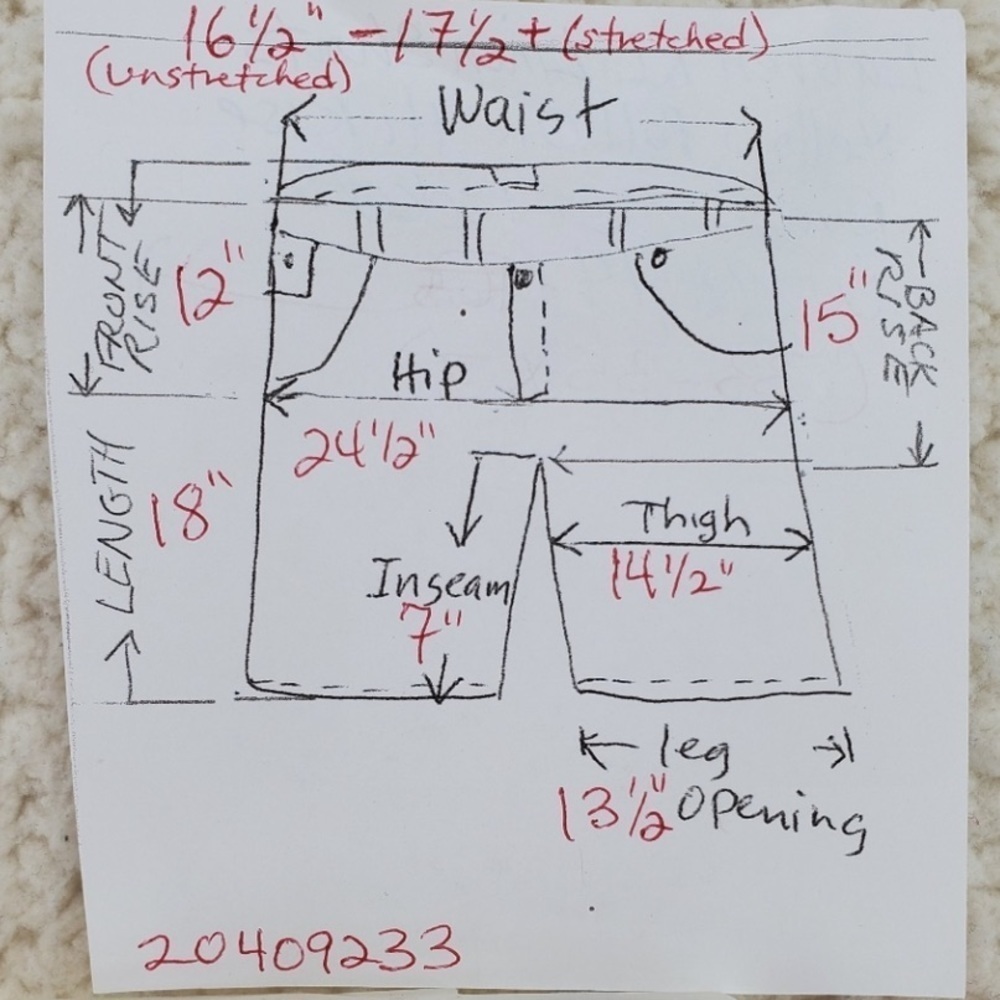 16 1/2" - 17 1/2 + (stretched)
(unstretched)
Waist
FRONT
RISE
12"
15"
BACK
RISE
Hip
24 1/2"
LENGTH
18"
Thigh
14 1/2"
Inseam
7"
leg
13 1/2" Opening
20409233